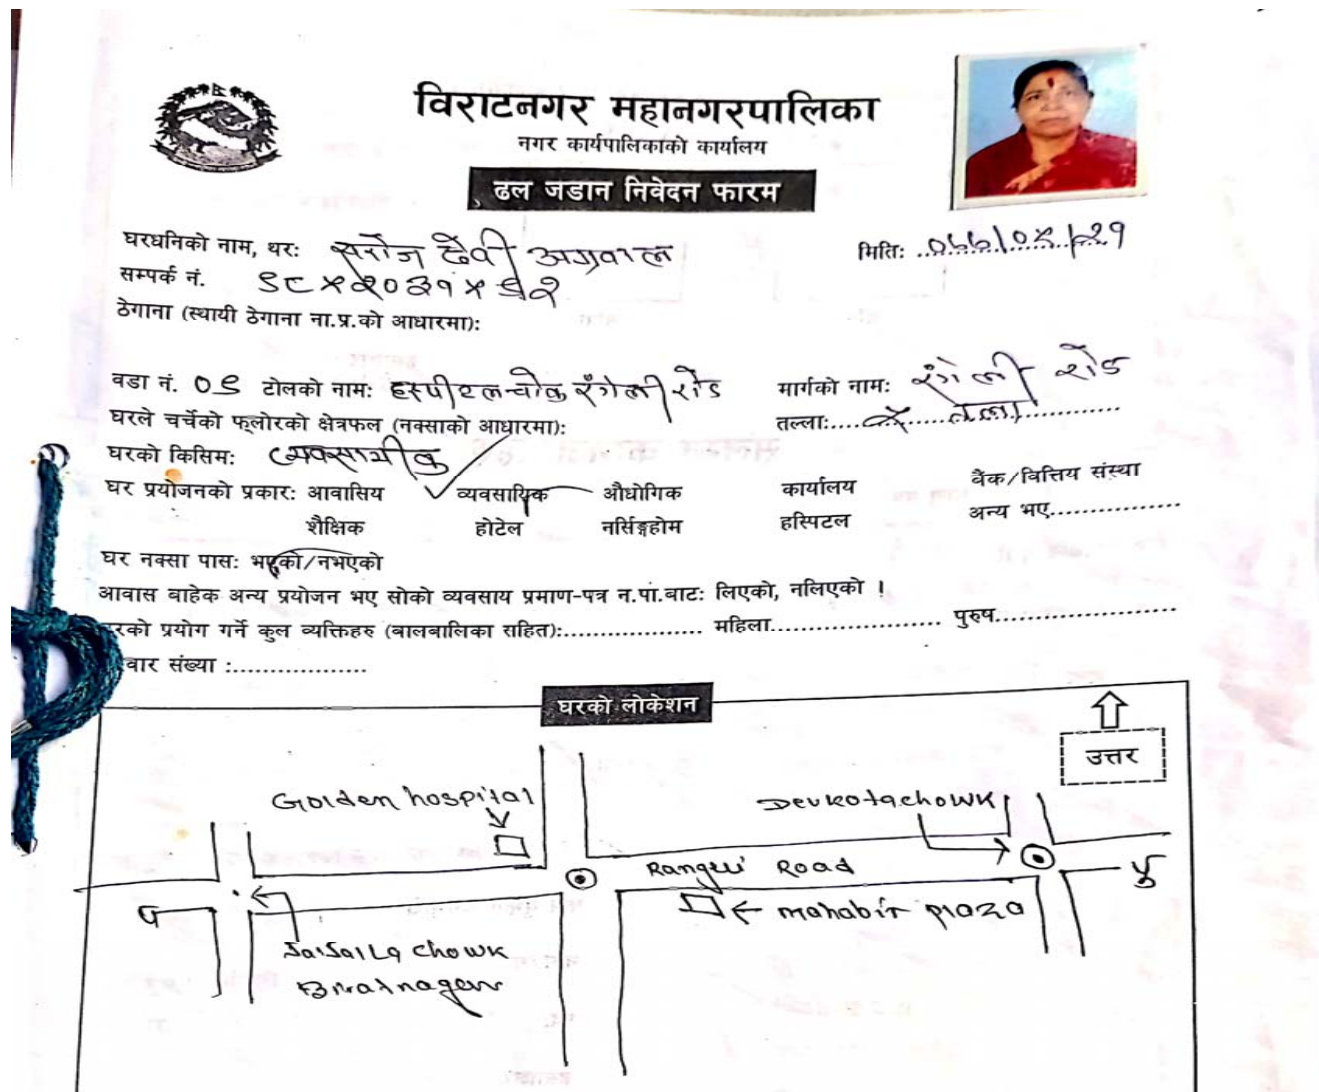 विराटनगर महानगरपालिका
नगर कार्यपालिकाको कार्यालय
ढल जडान निवेदन फारम
घरधनिको नाम, थरः सरोज देवी अग्रवाल मितिः
सम्पर्क नं.
ठेगाना (स्थायी ठेगाना ना.प्र.को आधारमा):
वडा नं. ०९ टोलको नामः हस्पीटल चोक रंगेली रोड मार्गको नामः रंगेली रोड
घरले चर्चेको फ्लोरको क्षेत्रफल (नक्साको आधारमा): तल्लाः.... तल्ला
घरको किसिमः व्यवसायीक
घर प्रयोजनको प्रकारः आवासिय व्यवसायिक औधोगिक कार्यालय बैंक/वित्तिय संस्था
शैक्षिक होटेल नर्सिङ्गहोम हस्पिटल अन्य भए................
घर नक्सा पासः भएको/नभएको
आवास बाहेक अन्य प्रयोजन भए सोको व्यवसाय प्रमाण-पत्र न.पा.बाटः लिएको, नलिएको !
रको प्रयोग गर्ने कुल व्यक्तिहरु (बालबालिका सहित):.................. महिला...................... पुरुष.......................
वार संख्या :.................
घरको लोकेशन
उत्तर
Golden hospital
Devkotachowk
Rangeli Road
पु
प
mahabir plaza
Jaljala chowk
Biratnagar